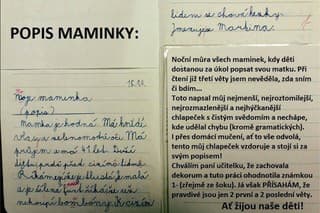 POPIS MAMINKY:
15.10.
Moje maminka
(popis)
Mamka je hodná. Má krátké
vlasy a
Má
41 let.
před cizími lidmi.
je
a
nekouří
K cizím
lidem se chová hezky.
Jmenuje se Martina.
Noční můra všech maminek, kdy děti
dostanou za úkol popsat svou matku. Při
čtení již třetí věty jsem nevěděla, zda sním
či bdím...
Toto napsal můj nejmenší, nejroztomilejší,
nejrozmazlenější a nejhýčkanější
chlapeček s čistým svědomím a nechápe,
kde udělal chybu (kromě gramatických).
I přes domácí mučení, ač to vše odvolá,
tento můj chlapeček vzdoruje a stojí si za
svým popisem!
Chválím paní učitelku, že zachovala
dekorum a tuto práci ohodnotila známkou
1- (zřejmě ze šoku). Já však PŘÍSAHÁM, že
pravdivé jsou jen 2 první a 2 poslední věty.
Ať žijou naše děti!